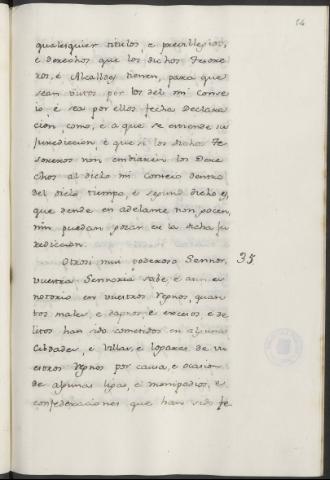 14
qualesquier titulos, e previllegios,
e derechos que los dichos Thesore
ros, é Alcalldes tienen, para que
sean vistos por los del mi Conse
jo, é sea por ellos fecha declara
cion, como, e a que se entiende su
Jurediccion, é que si los dichos The
soreros non embiaren los Dere
chos al dicho mi Consejo dentro
del dicho tiempo, é segund dicho es,
que dende en adelante non gocen,
nin puedan gozar de la dicha Ju
rediccion.
Otrosi mui poderoso Sennor, 35
vuestra Sennoria sabe é aun es
notorio en vuestros Regnos, quan
tos males, e dapnos, é excesos, é de
litos han sido cometidos en algunas
Cibdades, é Villas, e logares de vu
estros Regnos por causa, e ocasion
de algunas ligas, é monipodios, e
confederaciones que han sido fe